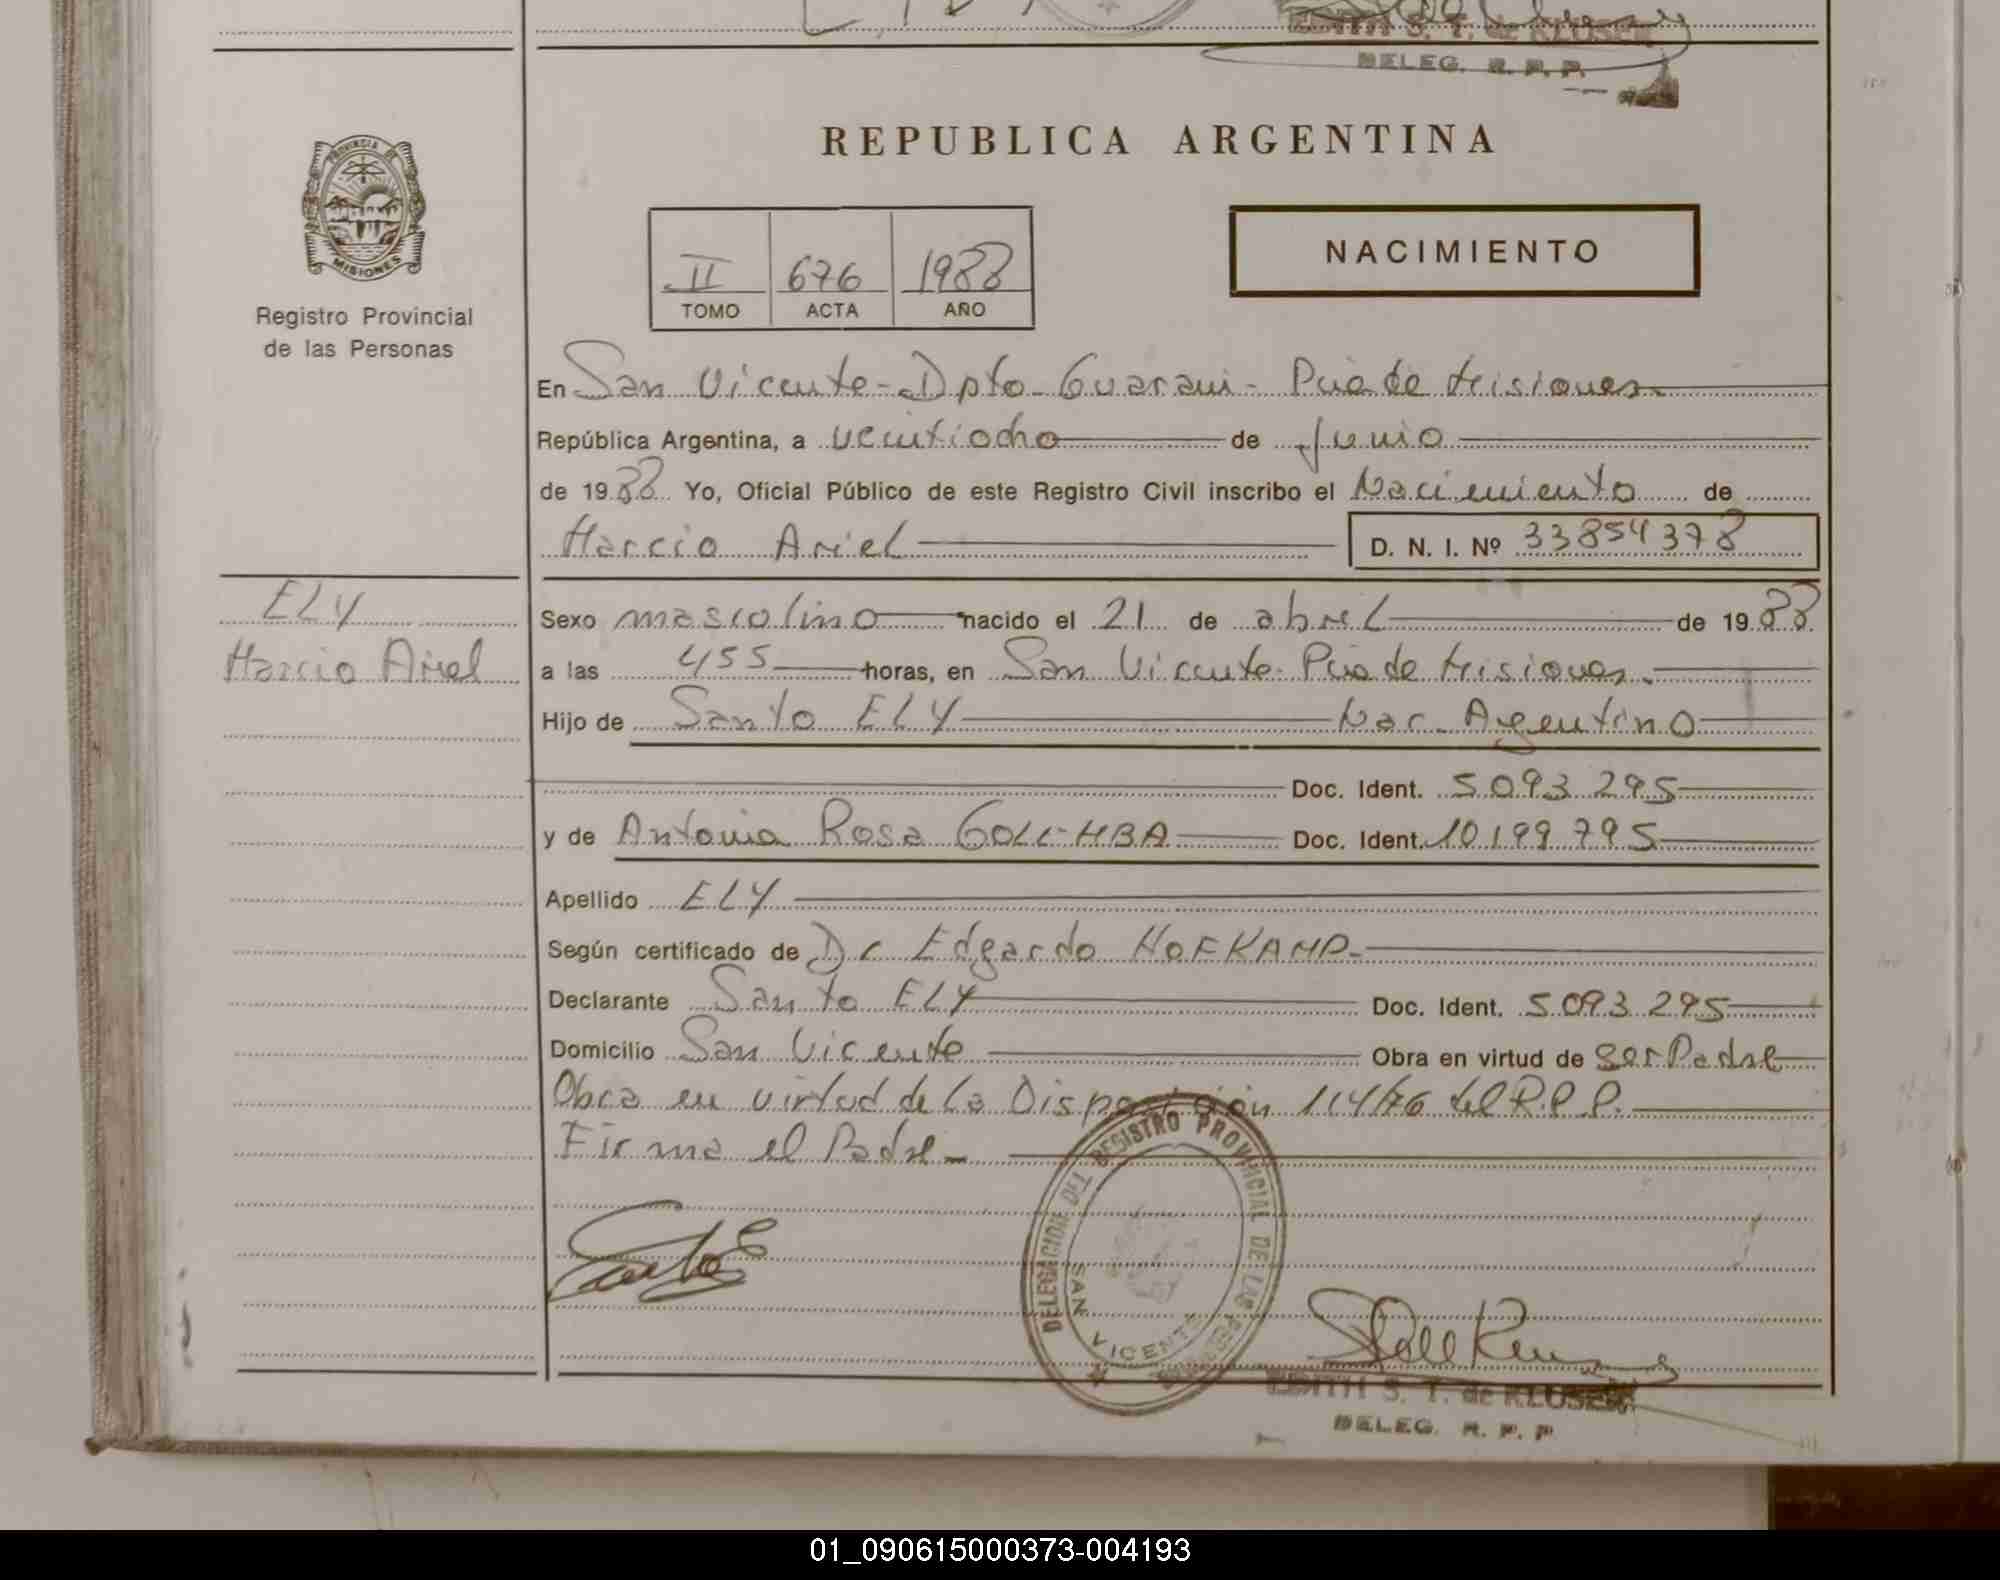 EDITH S. T. de KLUSER
DELEG. R. P. P.
PROVINCIA DE
MISIONES
Registro Provincial
de las Personas
REPUBLICA ARGENTINA
NACIMIENTO
II 676 1988
TOMO ACTA AÑO
En San Vicente - Dpto - Guarani - Pcia de Misiones
República Argentina, a veintiocho de Junio
de 1988 Yo, Oficial Público de este Registro Civil inscribo el Nacimiento de
Marcio Ariel D. N. I. Nº 33854378
ELY
Marcio Ariel
Sexo masculino nacido el 21 de abril de 1988
a las 455 horas, en San Vicente - Pcia de Misiones.
Hijo de Santo ELY Nac. Argentino
Doc. Ident. 5.093.295
y de Antonia Rosa Doc. Ident. 10.199.795
Apellido ELY
Según certificado de Dr Edgardo HOFKAMP -
Declarante Santo ELY Doc. Ident. 5.093.295
Domicilio San Vicente Obra en virtud de ser Padre
Obra en virtud de la Disposición 114/76 del R.P.P.
Firma el Padre -
DELEGACION DEL REGISTRO PROVINCIAL DE LAS PERSONAS
SAN VICENTE
EDITH S. T. de KLUSER
DELEG. R. P. P
01_090615000373-004193